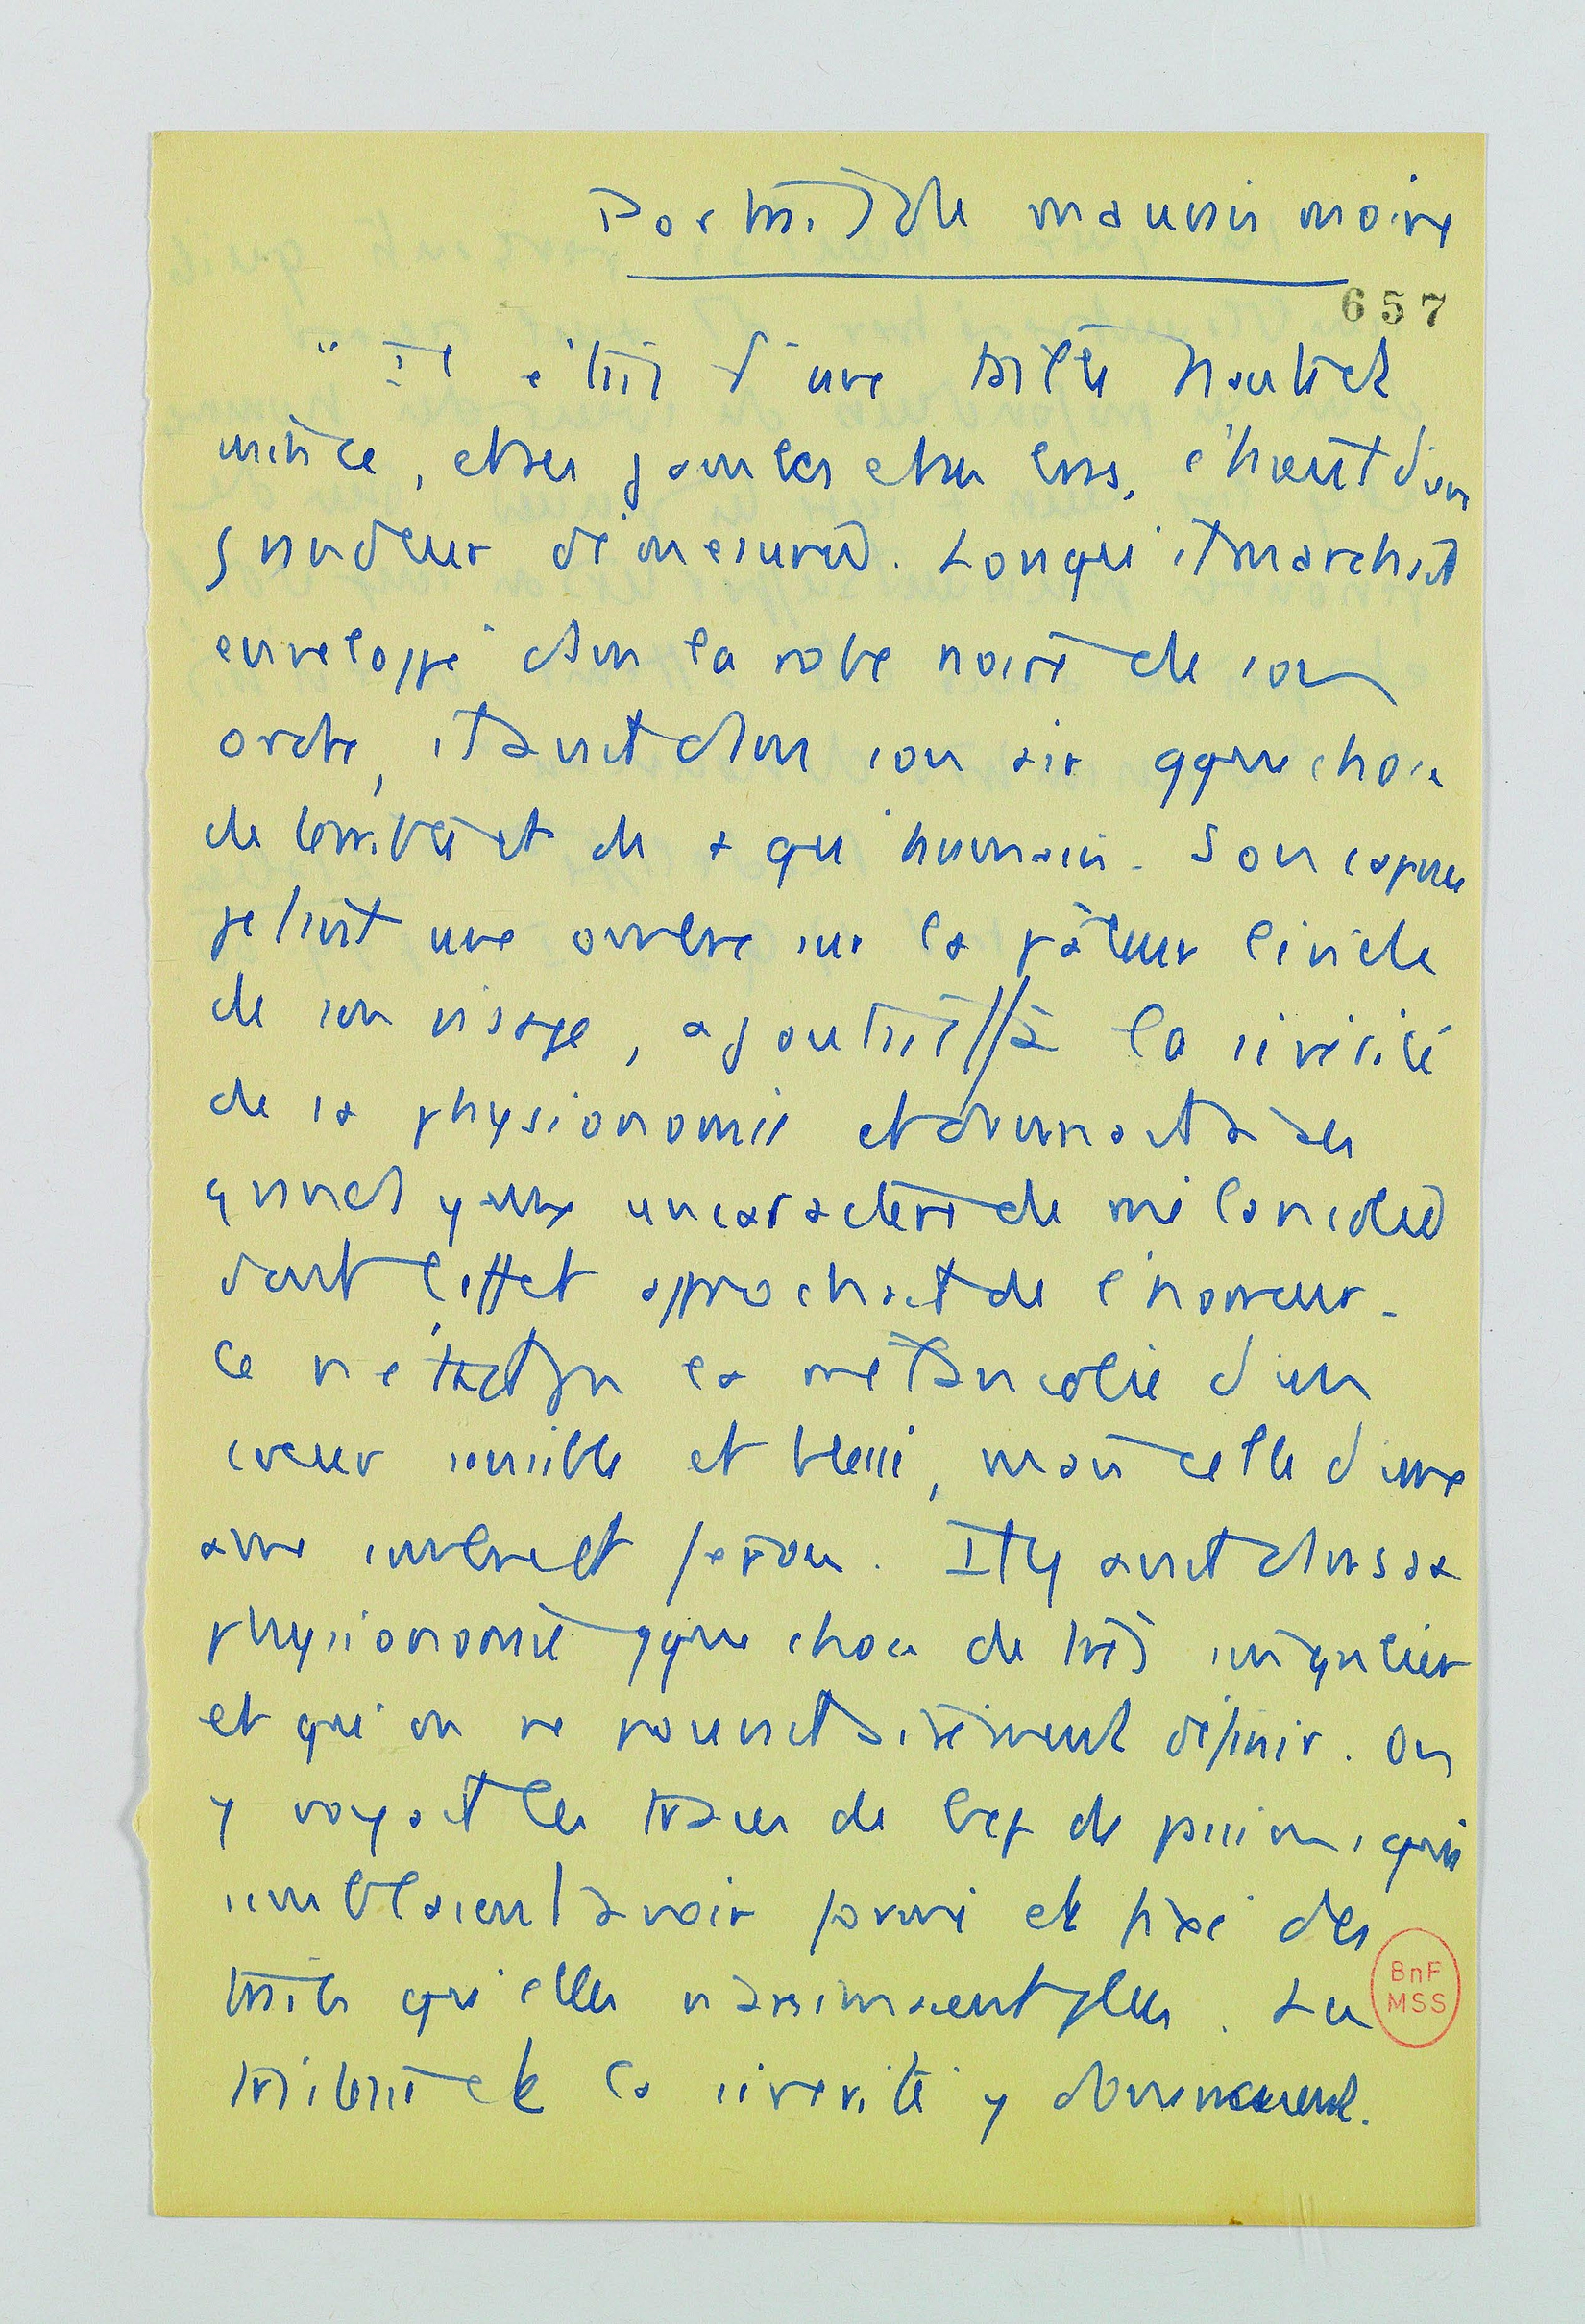 Portrait du mauvais moine
657
"Il était d'une taille haute et
mince, et ses jambes et ses bras, étaient d'un
grandeur démesurée. Lorsqu'il marchait
enveloppé dans la robe noire de son
ordre, il avait dans son air qque chose
de terrible et de + qu'humain. Son capuce
jetant une ombre sur la pâleur livide
de son visage, ajoutait // à la sévérité
de sa physionomie et donnait à ses
grands yeux un caractère de mélancolie
dont l'effet approchait de l'horreur.
Ce n'était pas la mélancolie d'un
cœur sensible et blessé, mais celle d'une
âme sombre et féroce. Il y avait dans sa
physionomie qque chose de très singulier
et qu'on ne pouvait aisément définir. On
y voyait les traces de bcp de passions, qui
semblaient avoir formé et fixé des
traits qu'elles n'animaient plus. La
tristesse et la sévérité y dominaient.
BnF
MSS